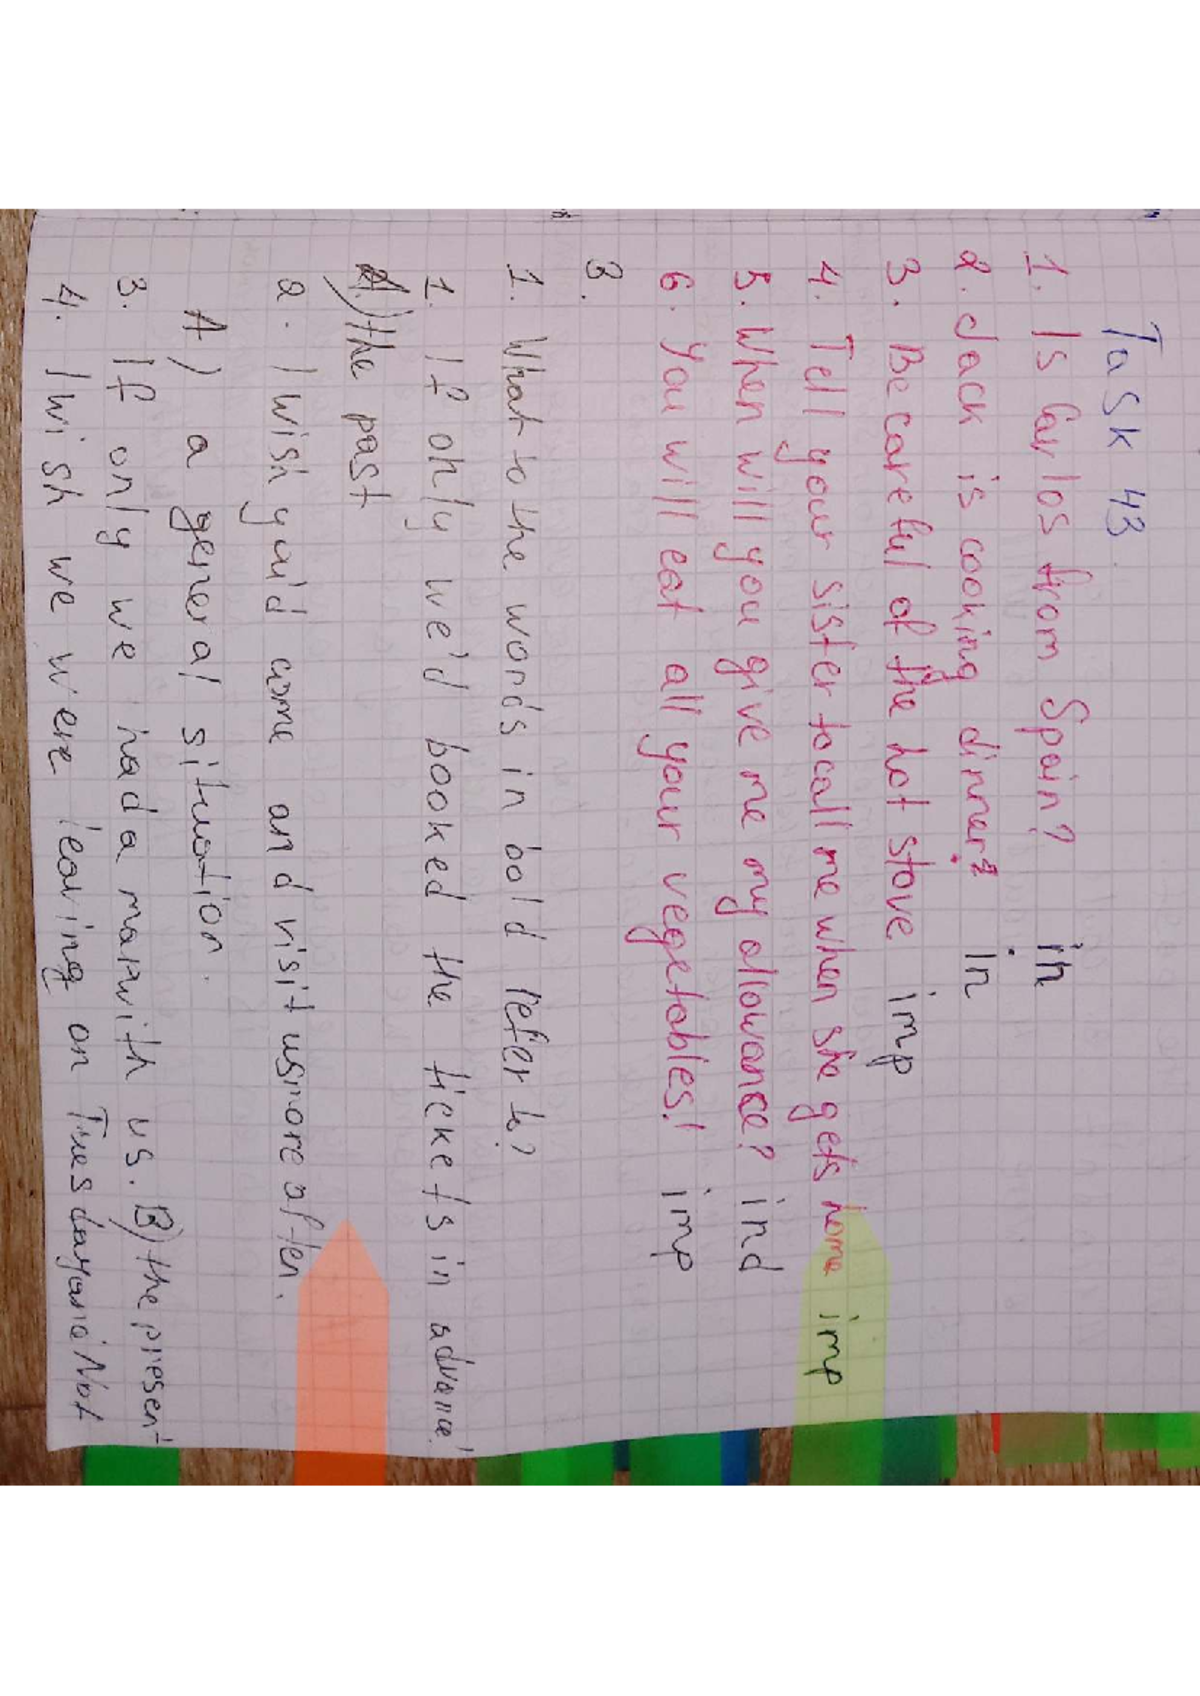 Task 43
1. Is Carlos from Spain? in
2. Jack is cooking dinner? in
3. Be careful of the hot stove imp
4. Tell your sister to call me when she gets home imp
5. When will you give me my allowance? ind
6. You will eat all your vegetables! imp
3.
1. What to the words in bold refer to?
1. If only we'd booked the tickets in advance!
A) the past
2. I wish you'd come and visit us more often.
A) a general situation.
3. If only we had a map with us. B) the present
4. I wish we were leaving on Tuesday and Not